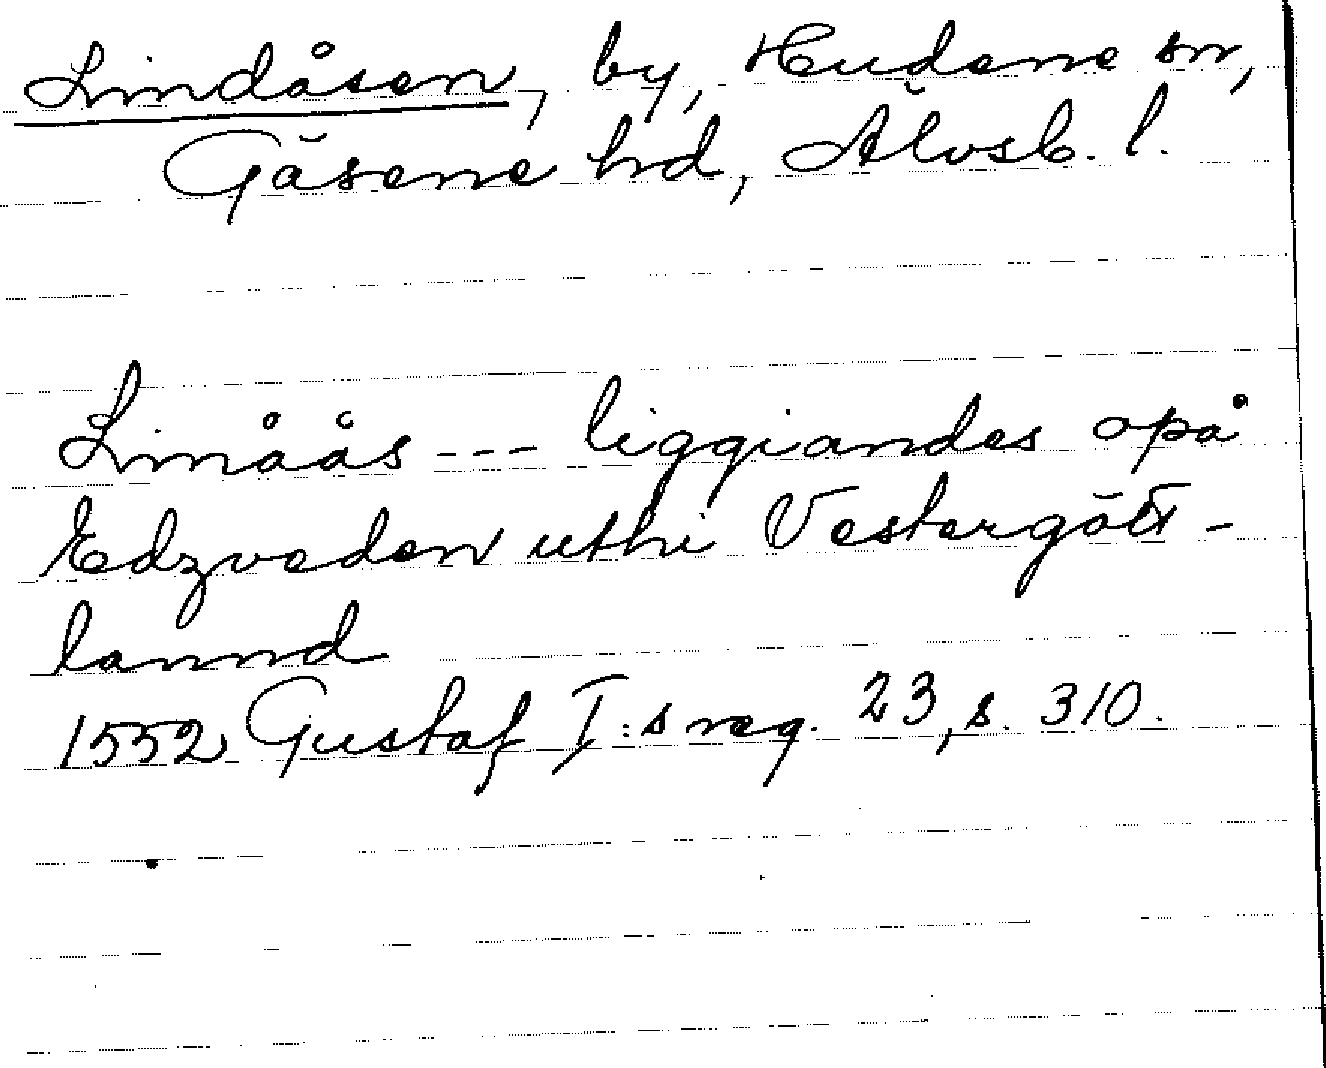 Lindåsen, by, Hudene sn,
Gäsene hd, Älvsb. l.
Linåås --- liggiandes opå
Edzveden uthi Vestergött-
lannd
1552 Gustaf I:s reg. 23, s. 310.